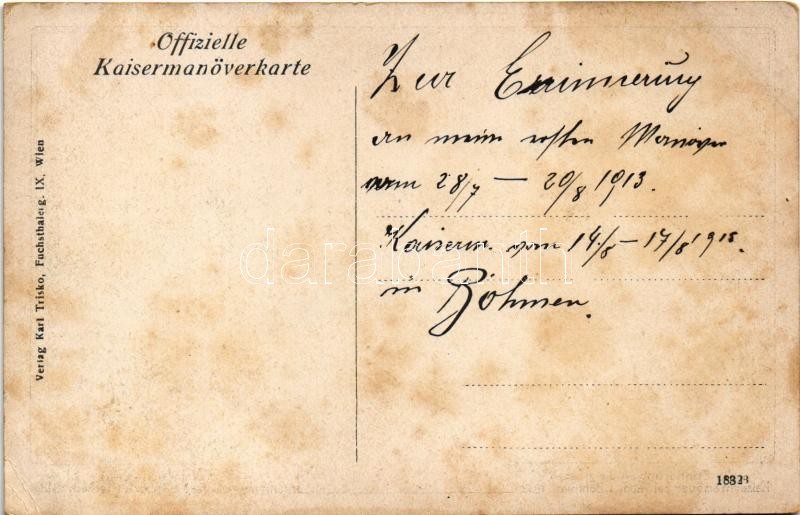 Offizielle
Kaisermanöverkarte
Zur Erinnerung
an mein ersten Manöver
vom 28/7 — 20/8 1913.
Kaiserm. vom 14/8 — 17/8 1913.
in Böhmen.
Verlag Karl Trisko, Fuchsthalerg. IX. Wien
darabanth